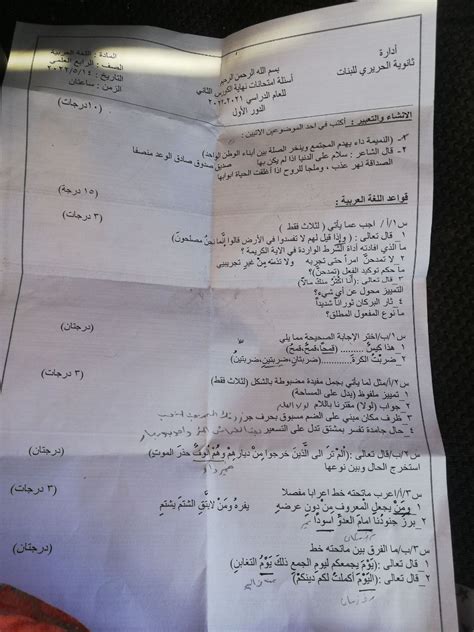 أدارة
ثانوية الحريري للبنات
بسم الله الرحمن الرحيم
أسئلة امتحانات نهاية الكورس الثاني
للعام الدراسي ٢٠٢١-٢٠٢٢
الدور الأول
المادة : اللغة العربية
الصف : الرابع العلمي
التاريخ : ٢٠٢٢/٥/١٤
الزمن : ساعتان
الانشاء والتعبير : أكتب في احد الموضوعين الاتيين : (١٠درجات)
(النميمة داء يهدم المجتمع وينخر الصلة بين أبناء الوطن الواحد)
قال الشاعر : سلام على الدنيا اذا لم يكن بها صديق صدوق صادق الوعد منصفا
الصداقة نهر عذب ، وملجأ للروح اذا أغلقت الحياة ابوابها
قواعد اللغة العربية : (١٥ درجة)
س١/أ/ اجب عما يأتي ( لثلاث فقط ) (٣ درجات)
١_ قال تعالى : ( وإذا قيل لهم لا تفسدوا في الأرض قالوا إنما نحن مصلحون)
ما الذي افادته أداة الشرط الواردة في الاية الكريمة ؟
٢_ لا تمدحنّ امرأ حتى تجربه ولا تذمنه من غير تجريب
ما حكم توكيد الفعل (تمدحنّ)؟
٣_ قال تعالى :(أنا أكثر منك مالاً)
التمييز محول عن أي شيء؟
٤_ ثار البركان ثوراناً شديداً
ما نوع المفعول المطلق؟
س١/ب/اختر الإجابة الصحيحة مما يلي (درجتان)
١_ هذا كيسٌ .......... (قمحاً، قمحٌ)
٢_ ضربتُ الكرة.......... (ضربتانِ،ضربتينِ،ضربتينُ)
س٢/أ/مثل لما يأتي بجمل مفيدة مضبوطة بالشكل (لثلاث فقط) (٣ درجات)
١_ تمييز ملفوظ (يدل على المساحة)
٢_ جواب (لولا) مقترنا باللام
٣_ ظرف مكان مبني على الضم مسبوق بحرف جر
٤_ حال جامدة تفسر بمشتق تدل على التسعير
س٢/ب/قال تعالى :(ألم تر الى الذين خرجوا من ديارهم وهم ألوف حذر الموت) (درجتان)
استخرج الحال وبين نوعها
س٣/أ/اعرب ماتحته خط اعرابا مفصلا (٣ درجات)
١_ ومن يجعل المعروف من دون عرضه يفره ومن لايتق الشتم يشتم
٢_ برز جنودنا امام العدو أسوداً
س٣/ب/ما الفرق بين ماتحته خط (درجتان)
١_ قال تعالى :(يوم يجمعكم ليوم الجمع ذلك يوم التغابن)
٢_ قال تعالى :(اليوم أكملت لكم دينكم)